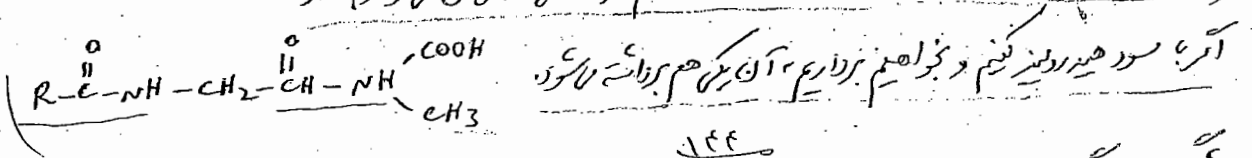 اگر با سود هیدرولیز کنیم و بخواهیم برداریم، آن یکی هم برداشته می‌شود.
R-C(=O)-NH-CH2-CH(=O)-NH COOH CH3
۱۴۴